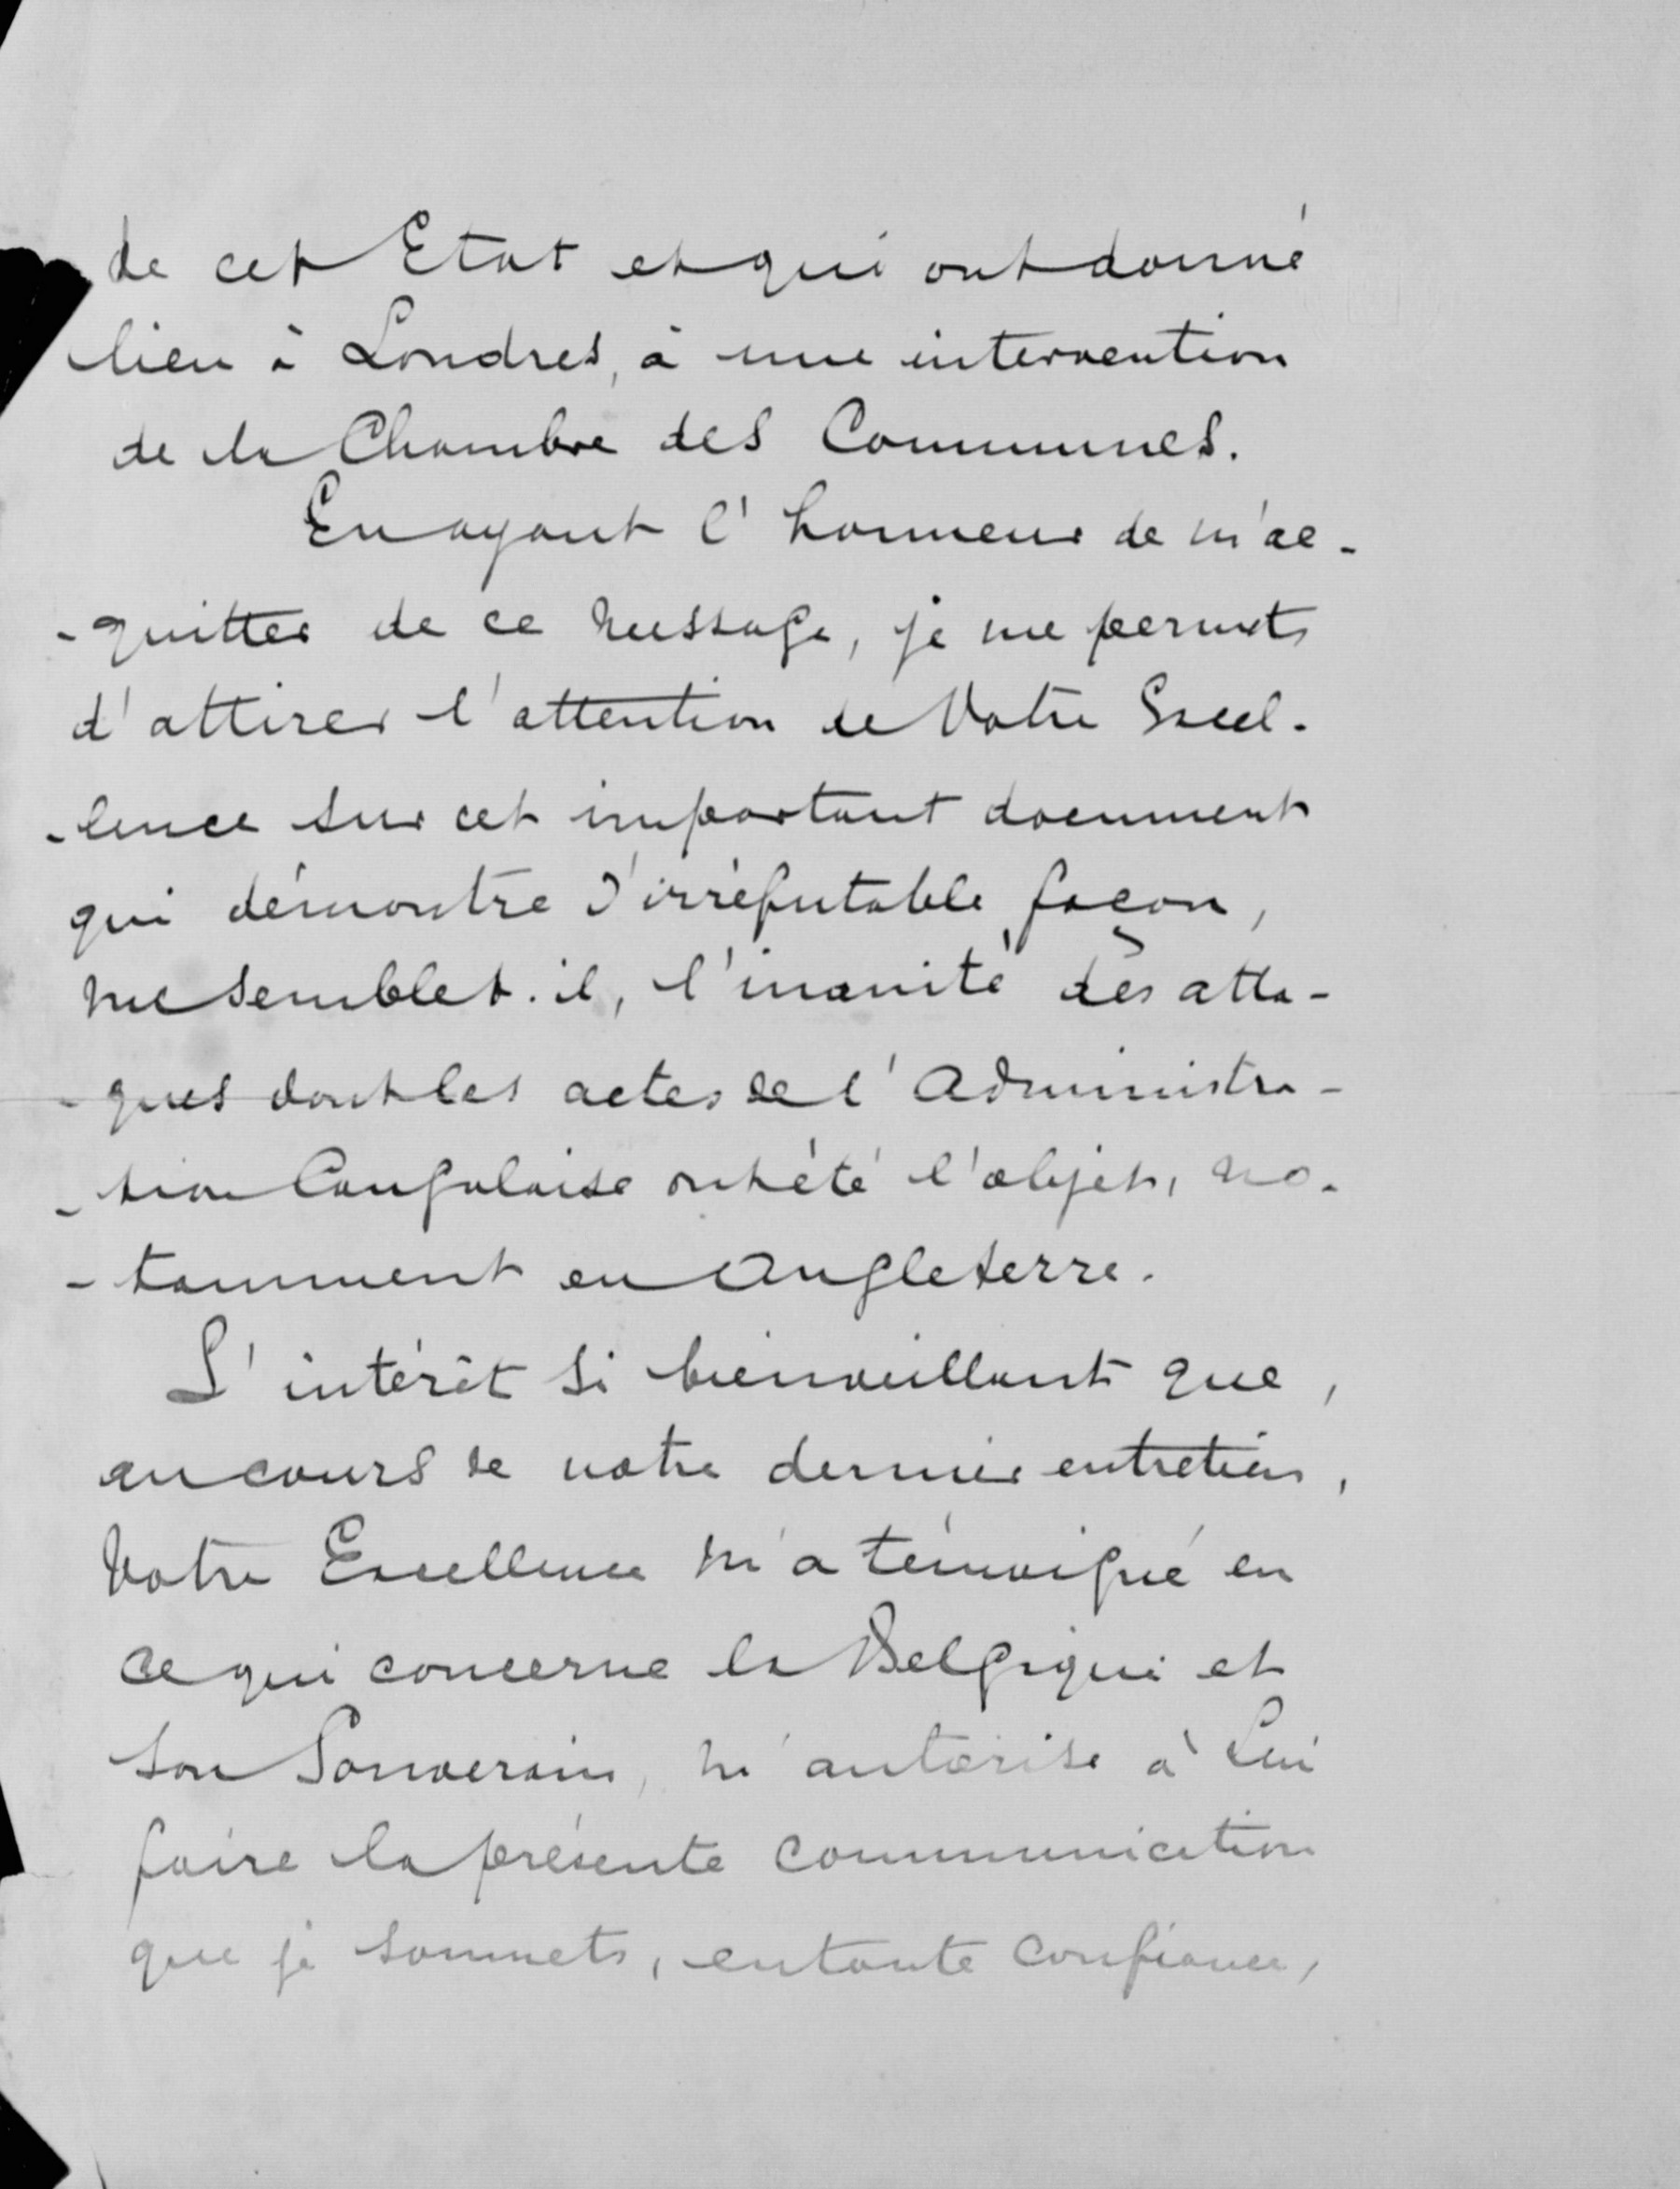 de cet Etat et qui ont donné
lieu à Londres, à une intervention
de la Chambre des Communes.
En ayant l'honneur de m'ac-
-quitter de ce message, je me permets
d'attirer l'attention de Votre Excel-
-lence sur cet important document
qui démontre d'irréfutable façon,
me semblet-il, l'inanité des atta-
-ques dont les actes de l'Administra-
-tion Congolaise ont été l'objet, no-
-tamment en Angleterre.
L'intérêt si bienveillant que,
au cours de notre dernier entretien,
Votre Excellence m'a témoigné en
ce qui concerne la Belgique et
son Souverain, m'autorise à Lui
faire la présente communication
que je soumets, en toute confiance,